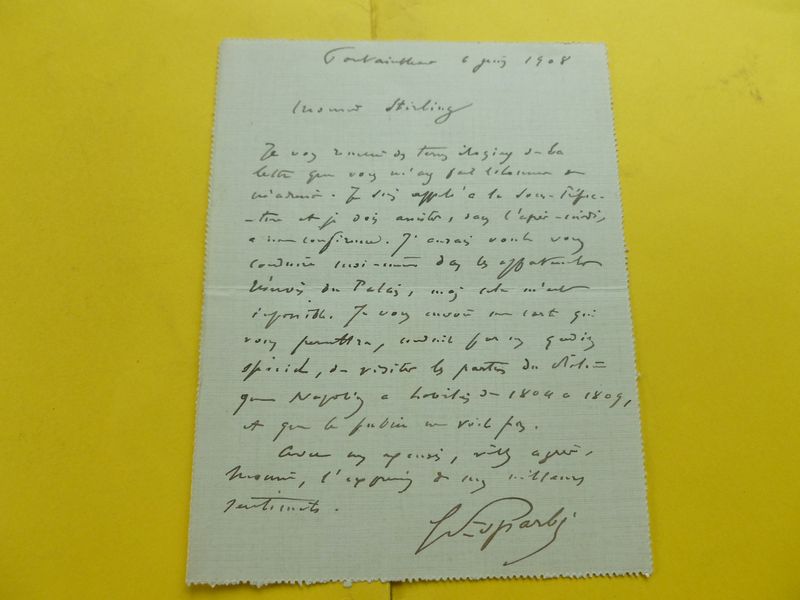 Fontainebleau 6 juin 1908
Monsieur Stirling
Je vous remercie des termes élogieux de la
lettre que vous m'avez fait l'honneur de
m'adresser. Je suis appelé à la Sous-Préfec-
-ture et je dois assister, dans l'après-midi,
à une conférence. J'aurais voulu vous
conduire moi-même dans les appartements
réservés du Palais, mais cela m'est
impossible. Je vous envoie une carte qui
vous permettra, conduit par un gardien
spécial, de visiter les parties du château
que Napoléon a habitées de 1804 à 1809,
et que le public ne voit pas.
Avec mes excuses, veuillez agréer,
Monsieur, l'expression de mes meilleurs
sentiments.
G d'Esparbès